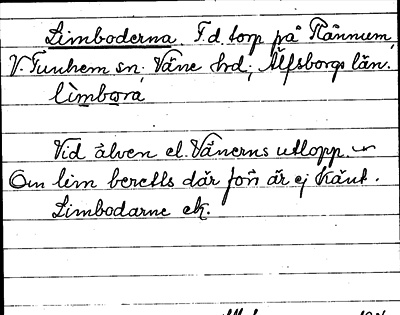 Limboderna. F.d. torp på Rånnum,
V. Tunhem sn; Väne hd; Älfsborgs län.
lìmbωra
Vid älven el. Vänerns utlopp.
Om lim beretts där förr är ej känt.
Limbodarne ek.